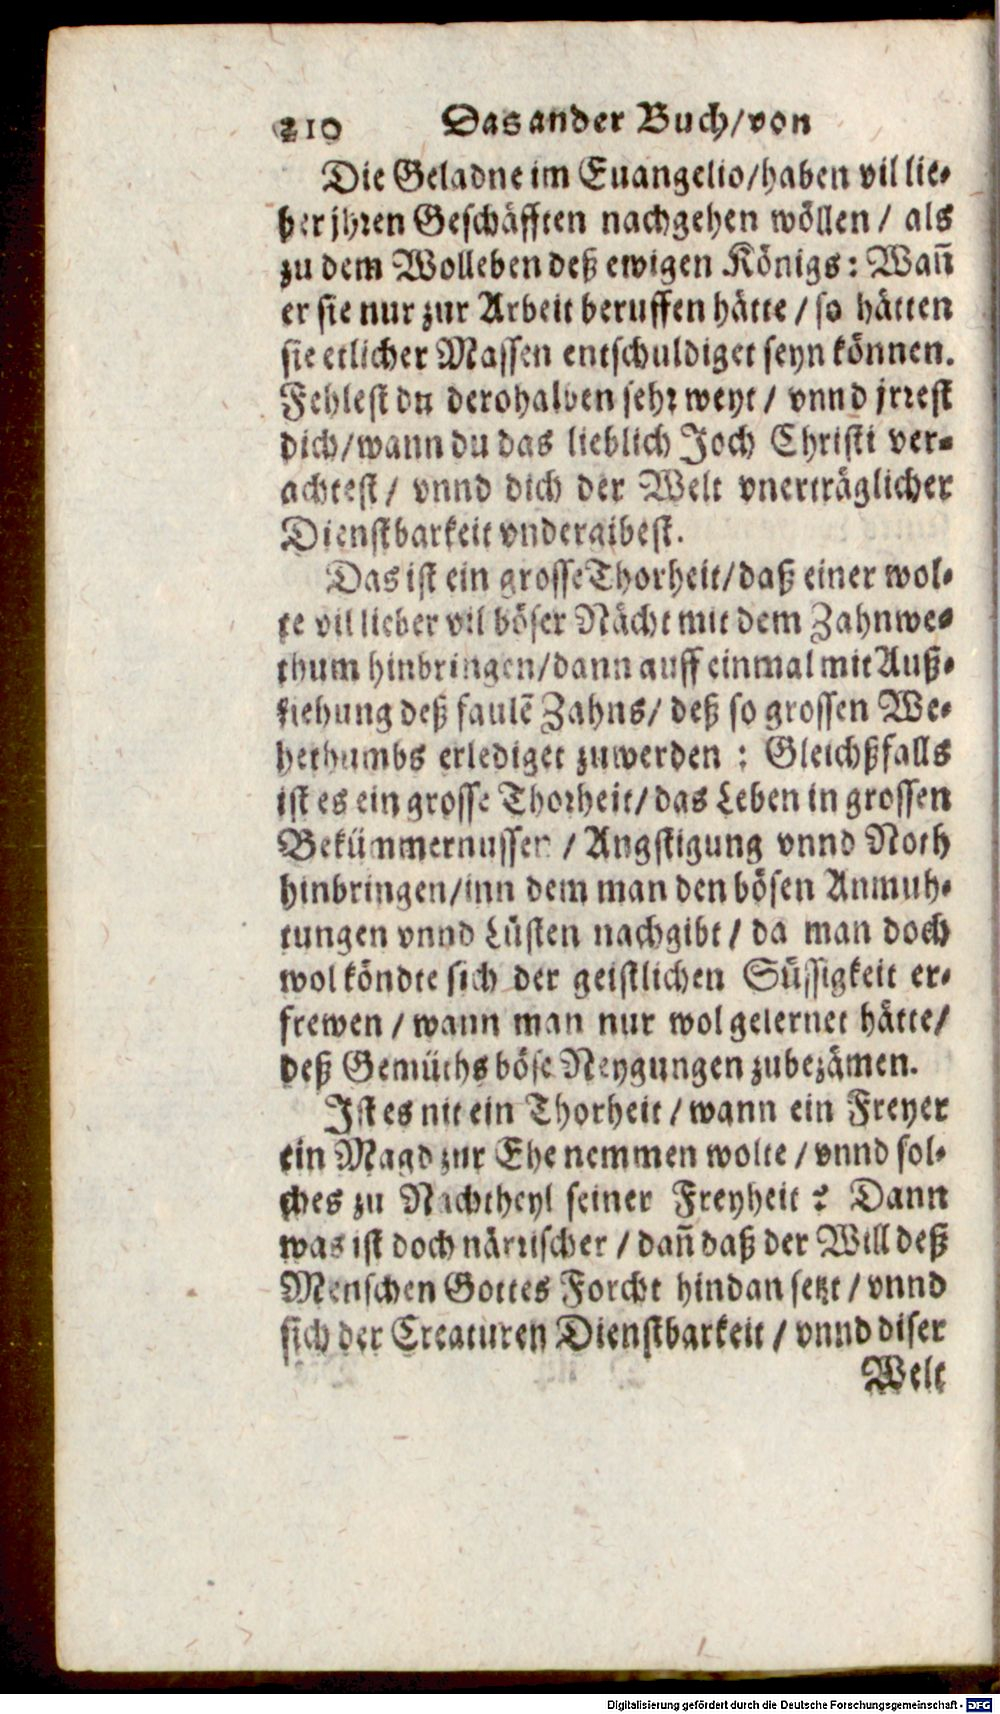 210 Das ander Buch/von
Die Geladne im Euangelio/haben vil lie-
ber jhren Geschäfften nachgehen wöllen / als
zu dem Wolleben deß ewigen Königs: Wañ
er sie nur zur Arbeit beruffen hätte / so hätten
sie etlicher Massen entschuldiget seyn können.
Fehlest du derohalben sehr weyt / vnnd jrrest
dich/wann du das lieblich Joch Christi ver-
achtest / vnnd dich der Welt vnerträglicher
Dienstbarkeit vndergibest.
Das ist ein grosse Thorheit/daß einer wol-
te vil lieber vil böser Nächt mit dem Zahnwe-
thum hinbringen/dann auff einmal mit Auß-
ziehung deß faulẽ Zahns/ deß so grossen We-
hethumbs erlediget zuwerden : Gleichßfalls
ist es ein grosse Thorheit/das Leben in grossen
Bekümmernussen / Angstigung vnnd Noth
hinbringen/inn dem man den bösen Anmuh-
tungen vnnd Lüsten nachgibt / da man doch
wol köndte sich der geistlichen Süssigkeit er-
frewen / wann man nur wol gelernet hätte/
deß Gemüths böse Neygungen zubezämen.
Ist es nit ein Thorheit / wann ein Freyer
ein Magd zur Ehe nemmen wolte / vnnd sol-
ches zu Nachtheyl seiner Freyheit ? Dann
was ist doch närrischer / dañ daß der Will deß
Menschen Gottes Forcht hindan setzt / vnnd
sich der Creaturen Dienstbarkeit / vnnd diser
Welt
Digitalisierung gefördert durch die Deutsche Forschungsgemeinschaft - DFG